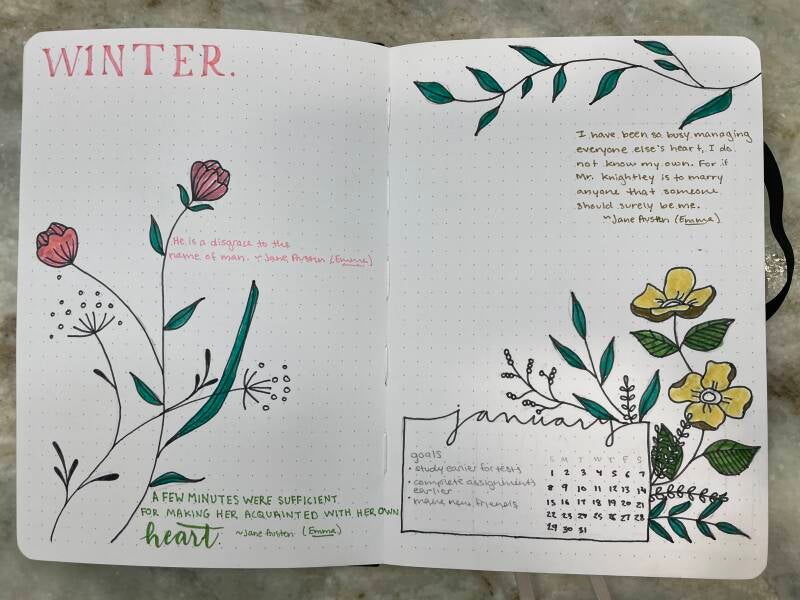 WINTER.
He is a disgrace to the
name of man. ~Jane Austen (Emma)
A FEW MINUTES WERE SUFFICIENT
FOR MAKING HER ACQUAINTED WITH HER OWN
heart. ~Jane Austen (Emma)
I have been so busy managing
everyone else's heart, I do
not know my own. For if
Mr. Knightley is to marry
anyone that someone
should surely be me.
~Jane Austen (Emma)
january
goals
• study earier for tests
• complete assignments
earlier
• make new friends
S M T W T F S
1 2 3 4 5 6 7
8 9 10 11 12 13 14
15 16 17 18 19 20 21
22 23 24 25 26 27 28
29 30 31